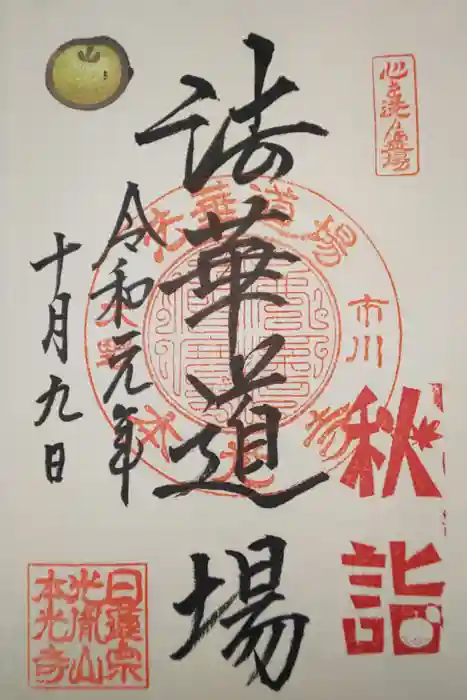 心を洗う霊場
市川
秋詣
法華道場
令和元年
十月九日
日蓮宗
光胤山
本光寺